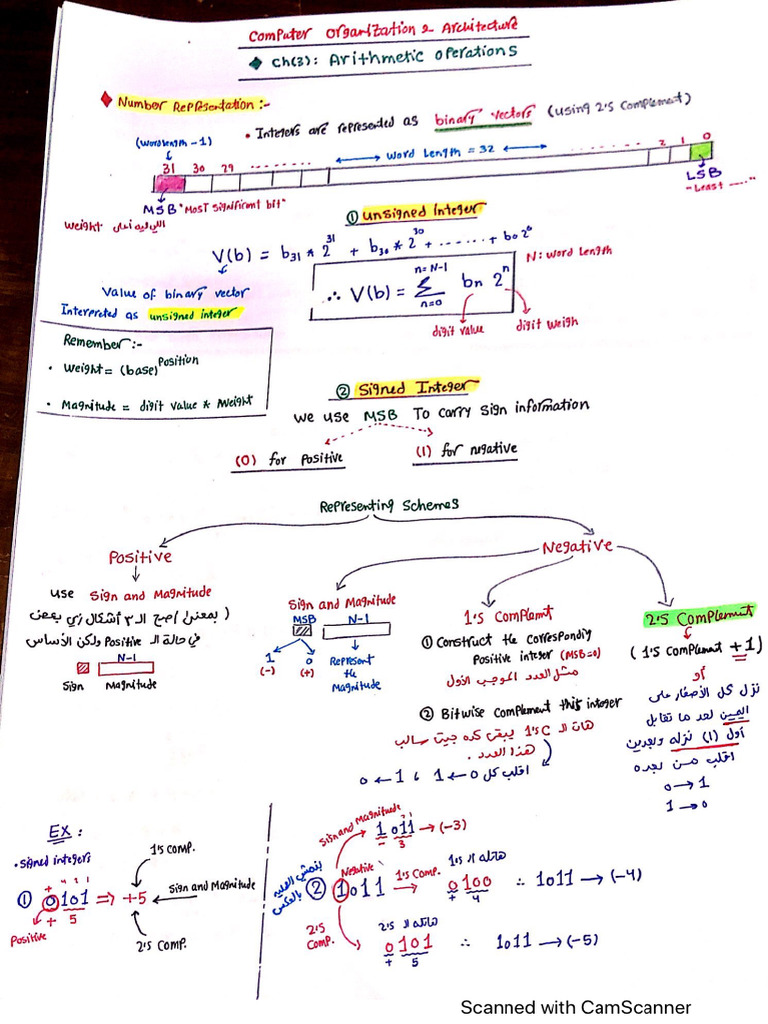 Computer Organization & Architecture
◆ Ch(3): Arithmetic operations
◆ Number Representation :-
• Integers are represented as binary vectors (using 2's Complement)
(word length - 1)
31 30 29 ........ ← Word Length = 32 → ........ 2 1 0
MSB "Most significant bit"
LSB
- Least ....."
اللي ليه أعلى weight
① Unsigned Integer
V(b) = b31 * 2^31 + b30 * 2^30 + ...... + b0 2^0
N: word Length
Value of binary vector
Interpreted as unsigned integer
∴ V(b) = Σ n=0 n=N-1 bn 2^n
digit value
digit weigh
Remember:-
• Weight = (base)^Position
• Magnitude = digit value * Weight
② Signed Integer
we use MSB To carry sign information
(0) for Positive
(1) for negative
Representing Schemes
Positive
use Sign and Magnitude
(بمعنى أصح الـ 3 أشكال زي بعض
في حالة الـ Positive ولكن الأساس
N-1
Sign Magnitude
Negative
Sign and Magnitude
MSB N-1
1 (-)
0 (+)
Represent
the
Magnitude
1's Complemt
① Construct the correspondig
Positive integer (MSB=0)
مثل العدد الموجب الأول
② Bitwise Complement this integer
هات الـ 1's C يبقى كده جيت سالب
هذا العدد.
اقلب كل 0 → 1 ، 1 → 0
2's Complemut
(1's Complemat +1)
أو
نزل كل الأصفار على
اليمين لحد ما تقابل
أول (1) نزله وبعدين
اقلب من بعده
0 → 1
1 → 0
EX :
• signed integers
① 0101 ⇒ +5
+ 4 2 1
+ 5
Positive
1's comp.
Sign and Magnitude
2's comp.
② 1011
Negative
بالعكس
Sign and Magnitude
1 011 → (-3)
- 3
1's Comp.
هاتله الـ 1's
0100 ∴ 1011 → (-4)
+ 4
2's
Comp.
هاتله الـ 2's
0101 ∴ 1011 → (-5)
+ 5
Scanned with CamScanner